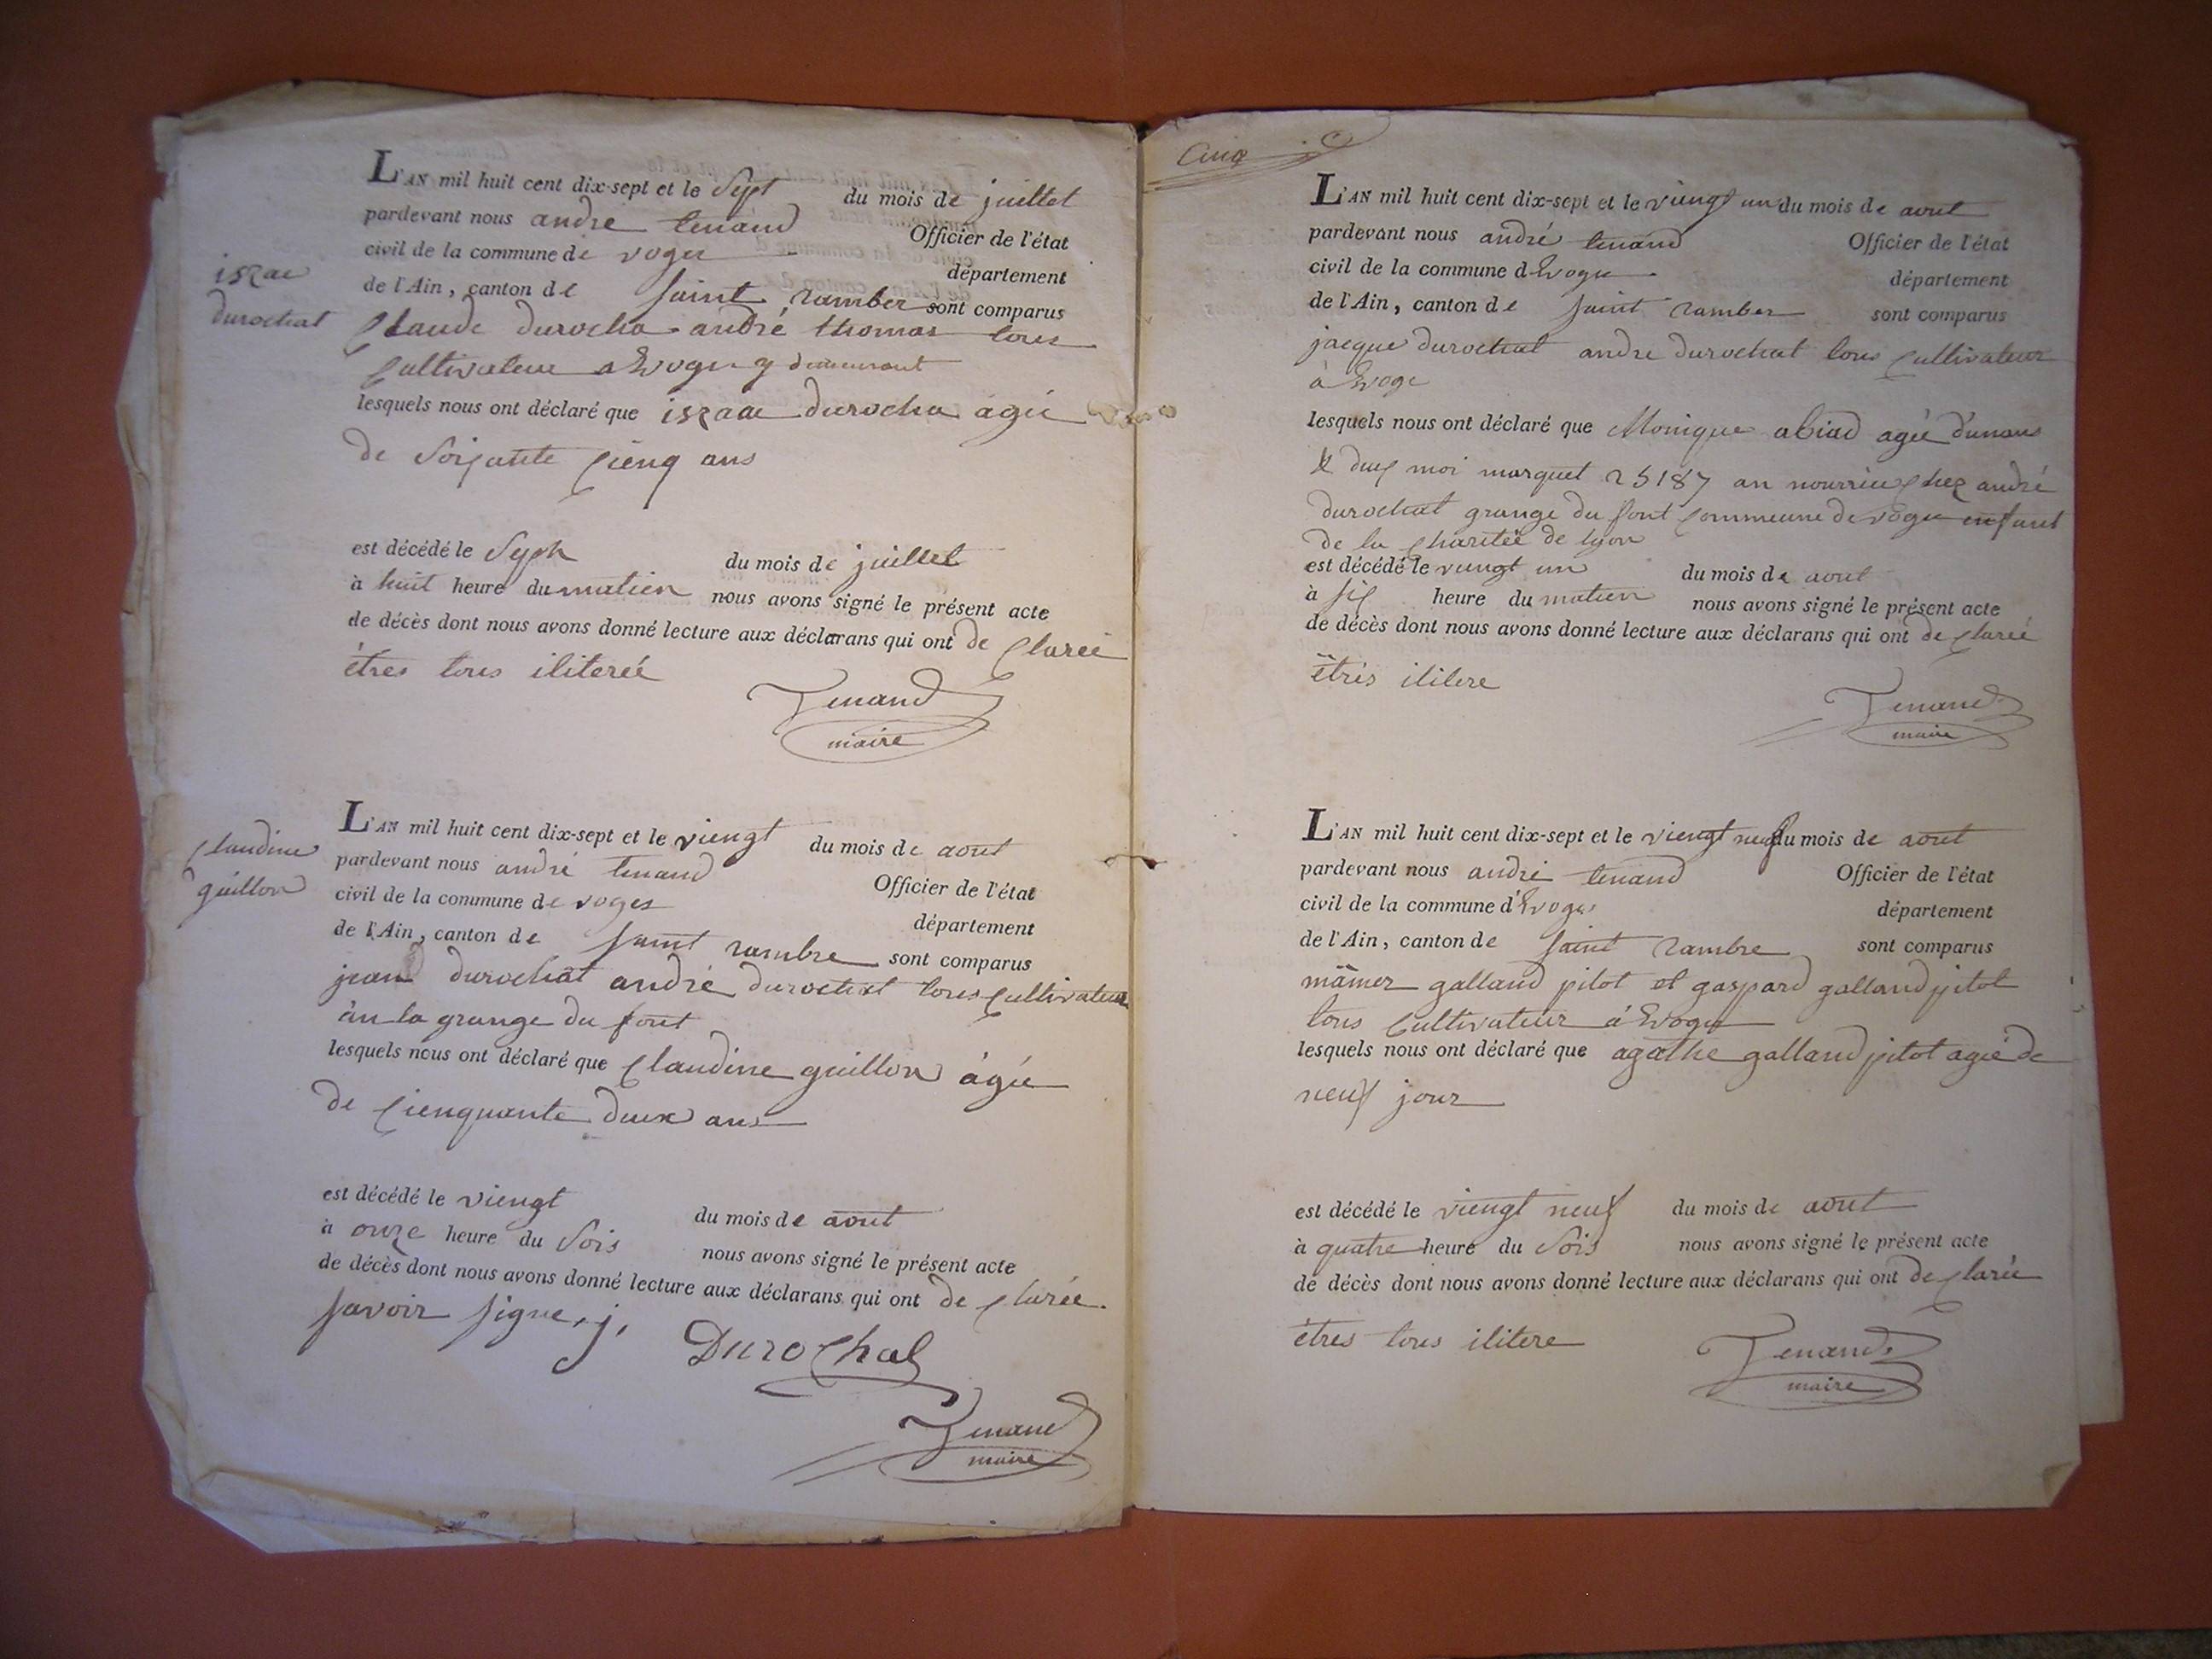 L'AN mil huit cent dix-sept et le Sept du mois de juillet
pardevant nous andre tenand Officier de l'état
civil de la commune de voges département
de l'Ain, canton de saint ramber sont comparus
izaac
durochat
Claude durocha andré thomas tous
cultivateur a Evoges y demeurant
lesquels nous ont déclaré que izaac durocha agée
de soisante cienq ans
est décédé le Seph du mois de juillet
à huit heure du matien nous avons signé le présent acte
de décès dont nous avons donné lecture aux déclarans qui ont de claree
étres tous ilitereé
Tenand
maire
L'AN mil huit cent dix-sept et le viengt du mois de aout
pardevant nous andré tenand Officier de l'état
civil de la commune de voges département
de l'Ain, canton de saint rambre sont comparus
Claudine
guillon
jean durochat andré durochat tous cultivateur
àu la grange du font
lesquels nous ont déclaré que Claudine guillon àgée
de cienquante deux ans
est décédé le viengt du mois de aout
à onze heure du Sois nous avons signé le présent acte
de décès dont nous avons donné lecture aux déclarans qui ont de clarée.
savoir signe, j,
DuroChat
Tenand
maire
Cinq
L'AN mil huit cent dix-sept et le viengt un du mois de aout
pardevant nous andré tenand Officier de l'état
civil de la commune d Evoges département
de l'Ain, canton de saint ramber sont comparus
jacque durochat andre durochat tous cultivateur
à Evoge
lesquels nous ont déclaré que Monique abiad agée dunans
& dux moi marquet 25187 an nourrice chez andré
durochat grange du font commeune de voges enfant
de la charitée de lyon
est décédé le viengt un du mois de aout
à six heure du matien nous avons signé le présent acte
de décès dont nous avons donné lecture aux déclarans qui ont de clareé
êtres ilitere
Tenand
maire
L'AN mil huit cent dix-sept et le viengt neuf du mois de aout
pardevant nous andré tenand Officier de l'état
civil de la commune d'Evoges département
de l'Ain, canton de saint rambre sont comparus
mamer galland pitot et gaspard galland pitot
tous cultivateur à Evoges
lesquels nous ont déclaré que agathe galland pitot agée de
neuf jour
est décédé le viengt neuf du mois de aout
à quatre heure du Sois nous avons signé le présent acte
de décès dont nous avons donné lecture aux déclarans qui ont de clarée
étres tous ilitere
Tenand
maire